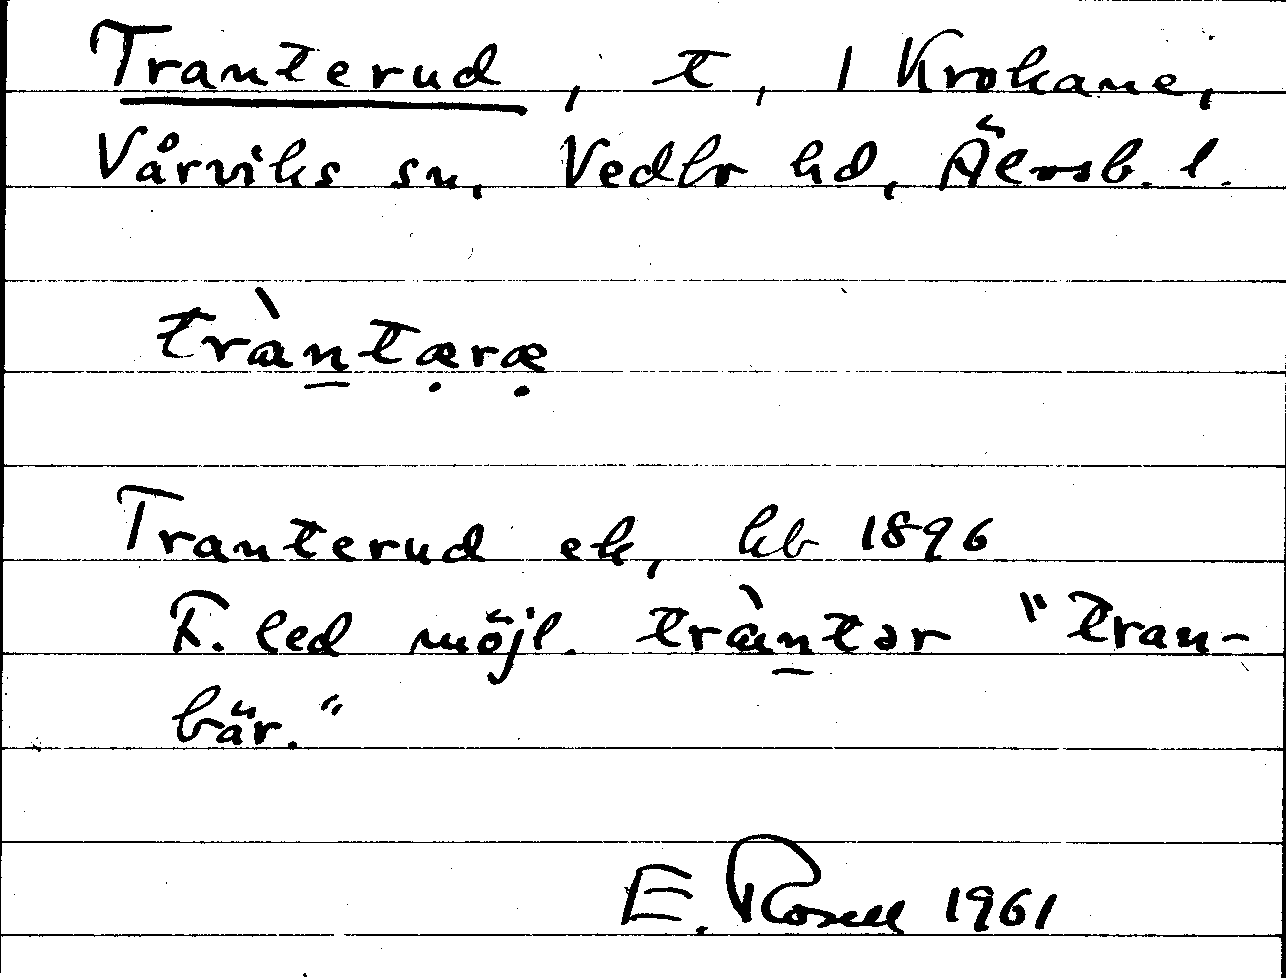 Tranterud, t, 1 Krokane,
Vårviks sn, Vedbo hd, Älvsb. l.
trànt̠æ̣ræ̣
Tranterud ek, kb 1896
F. led möjl. tràn̠tər "tran-
bär."
E. Rosell 1961